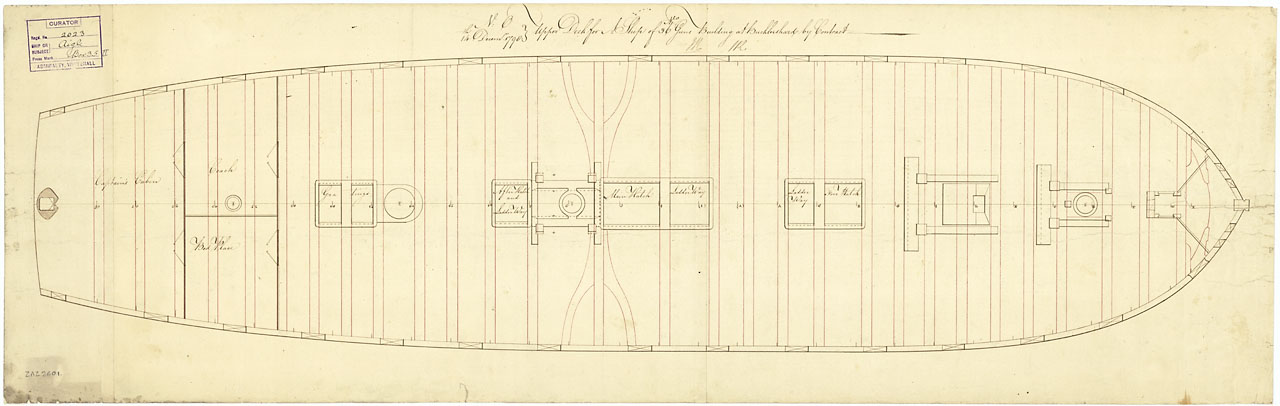 CURATOR
Regd. No. 2023
SHIP OR SUBJECT Aigle
Press Mark Box 35
ADMIRALTY, WHITEHALL
Upper Deck for A Ship of 36 Guns Building at Bucklershard by Contract
Captain's Cabin
Coach
Bed Place
After Hatch
and
Ladder Way
Main Hatch
Ladder Way
Ladder
Way
Fore Hatch